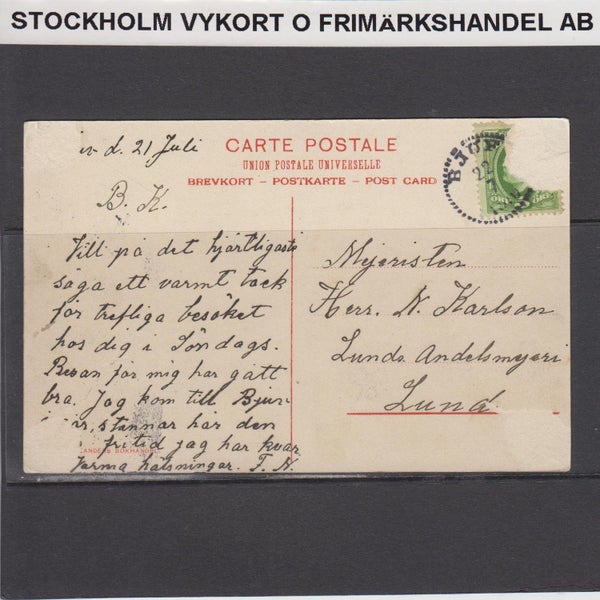 STOCKHOLM VYKORT O FRIMÄRKSHANDEL AB
d. 21 Juli
CARTE POSTALE
UNION POSTALE UNIVERSELLE
BREVKORT – POSTKARTE – POST CARD
BJUF
22
ÖRE
B. K.
Vill på det hjärtligaste
säga ett varmt tack
för trefliga besöket
hos dig i Söndags.
Resan för mig har gått
bra. Jag kom till Bjuf
stannar här den
fritid jag har kvar
Varma hälsningar. F. N.
ANDERS BOKHANDEL
Mejeristen
Herr. N. Karlson
Lunds Andelsmejeri
Lund